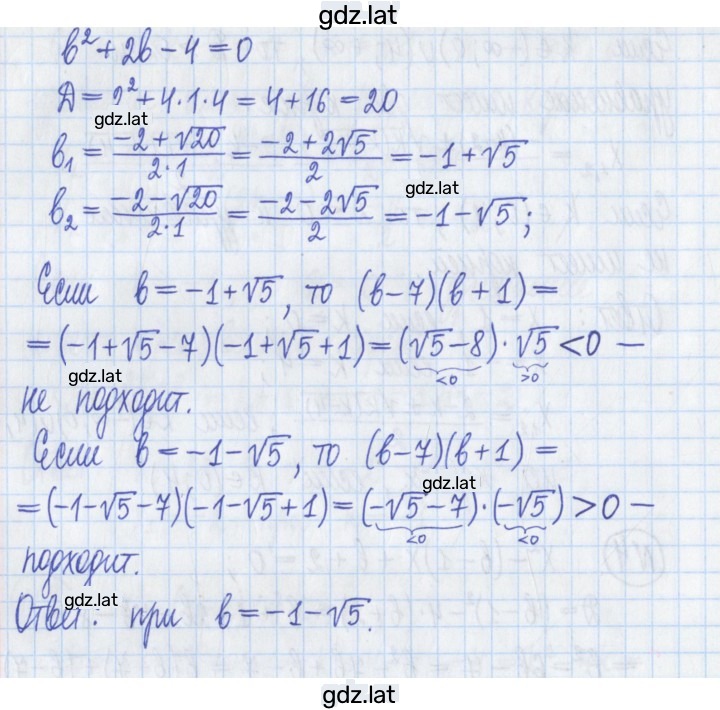 gdz.lat
b² + 2b − 4 = 0
Д = 2² + 4·1·4 = 4 + 16 = 20
gdz.lat
b₁ = (−2 + √20)/(2·1) = (−2 + 2√5)/2 = −1 + √5
gdz.lat
b₂ = (−2 − √20)/(2·1) = (−2 − 2√5)/2 = −1 − √5;
Если b = −1 + √5, то (b − 7)(b + 1) =
= (−1 + √5 − 7)(−1 + √5 + 1) = (√5 − 8)·√5 < 0 —
gdz.lat <0 >0
не подходит.
Если b = −1 − √5, то (b − 7)(b + 1) =
gdz.lat
= (−1 − √5 − 7)(−1 − √5 + 1) = (−√5 − 7)·(−√5) > 0 —
<0 <0
подходит.
gdz.lat
Ответ: при b = −1 − √5.
gdz.lat